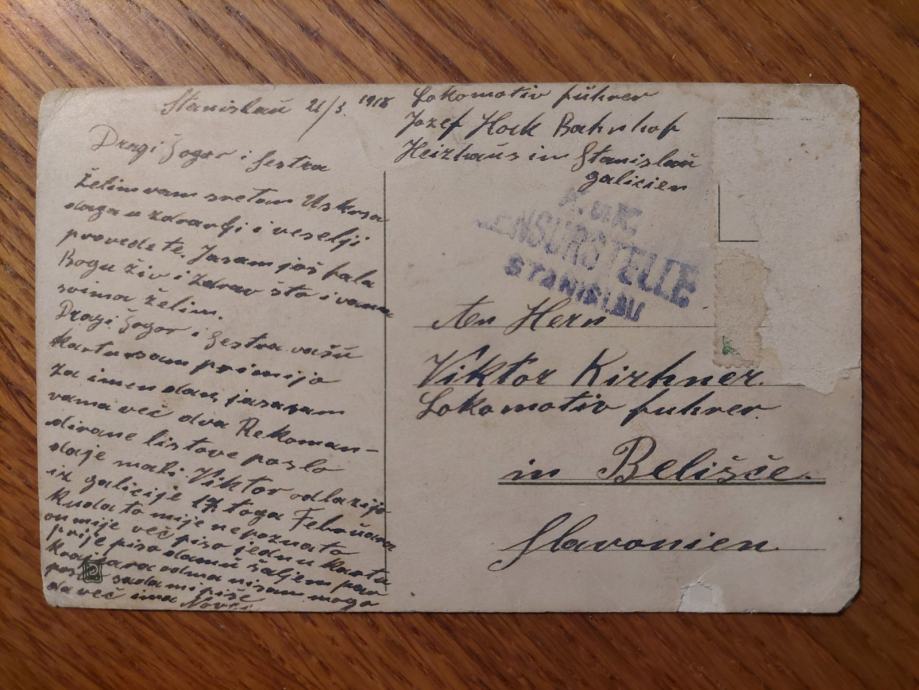 Stanislaŭ 21/3. 1918
Dragi Šogor i Sestra
Želim vam sretan Uskrsa
daga u zdravlji i veselji
provedete, Ja sam još hala
Bogu živ i zdrav što i vama
svima želim.
Dragi Šogor i Sestra vašu
kartu sam primijo
za imendan, ja sam
vama već dva Rekoman-
dirane listove poslo
da je mali Viktor odlazijo
iz galicije 17 toga Februara
kuda to mi je nepoznato
on mi je već piso jednu kartu
prije piso da mu šaljem par
kraj cara odma nisam mogo
sada mi piše
da već ima Novci
Lokomotiv führer
Jozef Hock Bahnhof
Heizhaus in Stanislaŭ
galicien
K.u.K.
ZENSURSTELLE
STANISLAU
An Hern
Viktor Kirhner.
Lokomotiv fuhrer.
in Belišće.
Slavonien